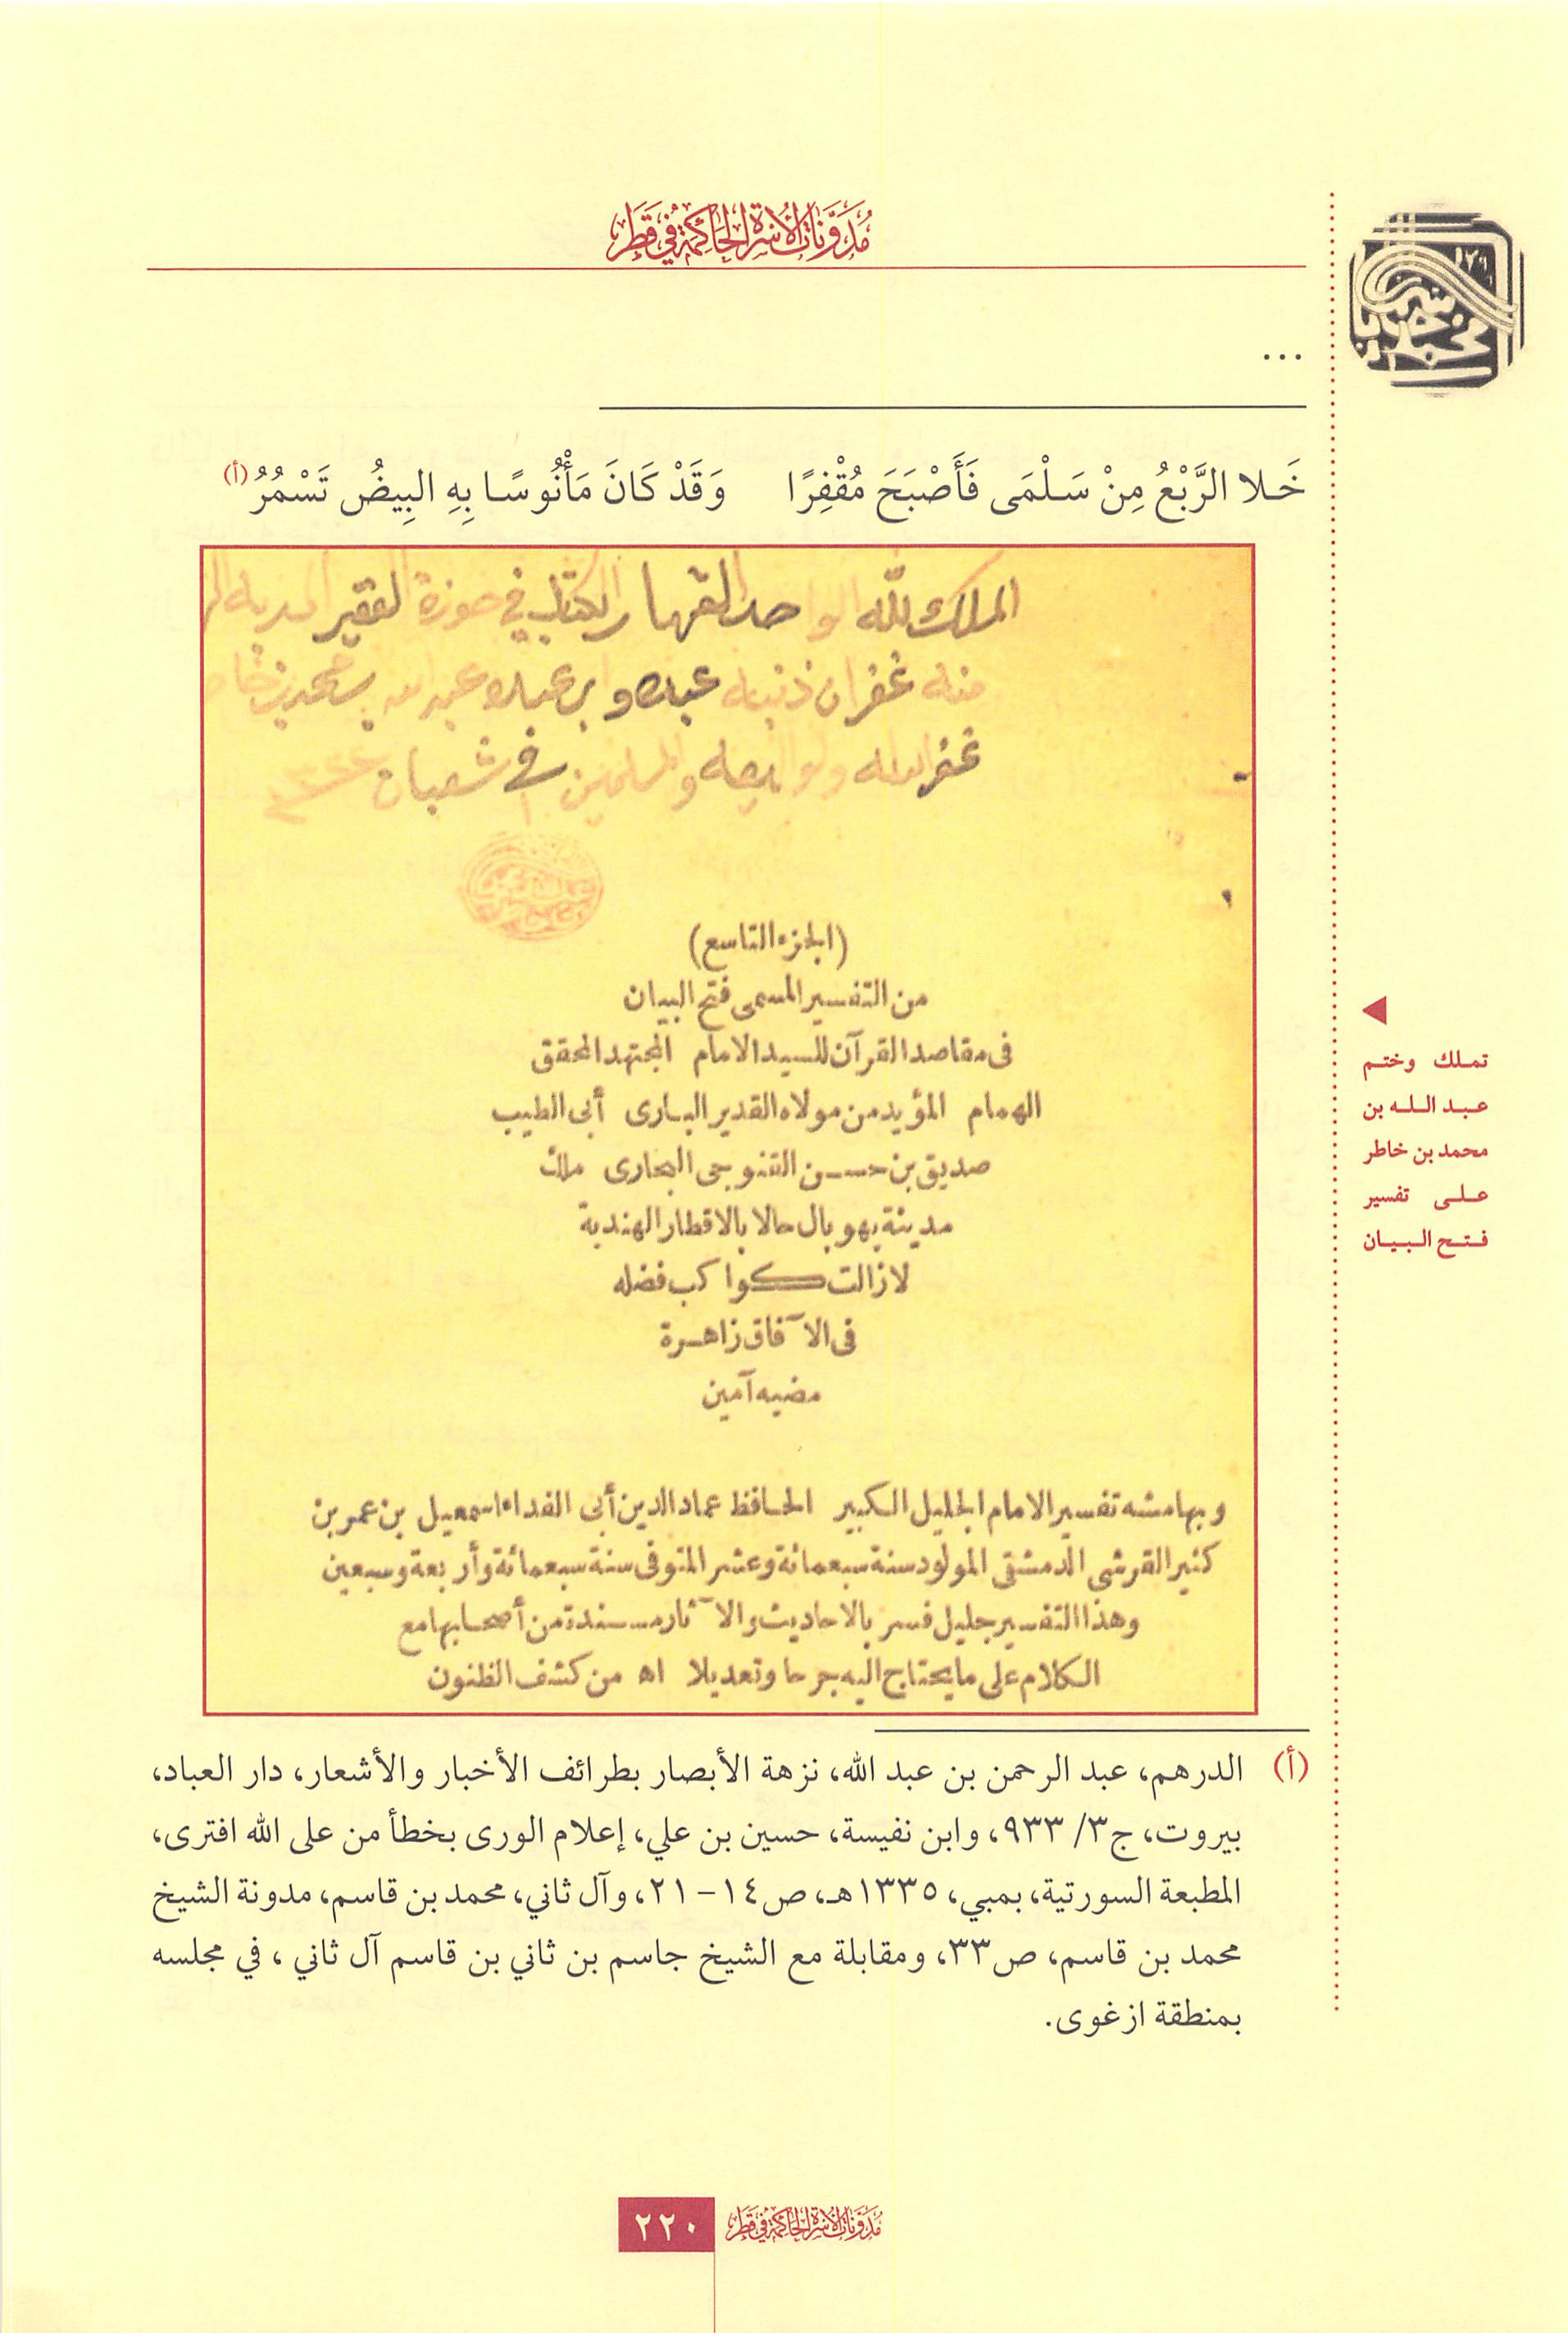 مُدَوَّنَاتُ الأُسْرَةِ الحَاكِمَةِ فِي قَطَر
...
خَلا الرَّبْعُ مِنْ سَلْمَى فَأَصْبَحَ مُقْفِرًا وَقَدْ كَانَ مَأْنُوسًا بِهِ البِيضُ تَسْمُرُ (أ)
الملك لله الواحد القهار الكتاب في حوزة الفقير
منه غفران ذنبه عبده وابن عبده عبد الله بن محمد بن خاطر
غفر الله له ولوالديه والمسلمين في شعبان
(الجزء التاسع)
من التفسير المسمى فتح البيان
فى مقاصد القرآن للسيد الامام المجتهد المحقق
الهمام المؤيد من مولاه القدير البارى أبى الطيب
صديق بن حسن القنوجى البخارى ملك
مدينة بهوبال حالا بالاقطار الهندية
لازالت كواكب فضله
فى الآفاق زاهرة
مضيه آمين
وبهامشه تفسير الامام الجليل الكبير الحافظ عماد الدين أبى الفداء اسمعيل بن عمر بن
كثير القرشى الدمشقى المولود سنة سبعمائة وعشر المتوفى سنة سبعمائة وأربعة وسبعين
وهذا التفسير جليل فسر بالاحاديث والآثار مسندة من أصحابها مع
الكلام على ما يحتاج اليه جرحا وتعديلا اه من كشف الظنون
تملك وختم
عبد الله بن
محمد بن خاطر
على تفسير
فتح البيان
(أ) الدرهم، عبد الرحمن بن عبد الله، نزهة الأبصار بطرائف الأخبار والأشعار، دار العباد،
بيروت، ج٣/ ٩٣٣، وابن نفيسة، حسين بن علي، إعلام الورى بخطأ من على الله افترى،
المطبعة السورتية، بمبي، ١٣٣٥هـ، ص١٤-٢١، وآل ثاني، محمد بن قاسم، مدونة الشيخ
محمد بن قاسم، ص٣٣، ومقابلة مع الشيخ جاسم بن ثاني بن قاسم آل ثاني ، في مجلسه
بمنطقة ازغوى.
مُدَوَّنَاتُ الأُسْرَةِ الحَاكِمَةِ فِي قَطَر
٢٢٠